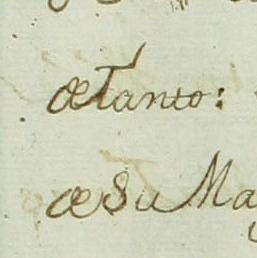 æTanto:
æSu Ma